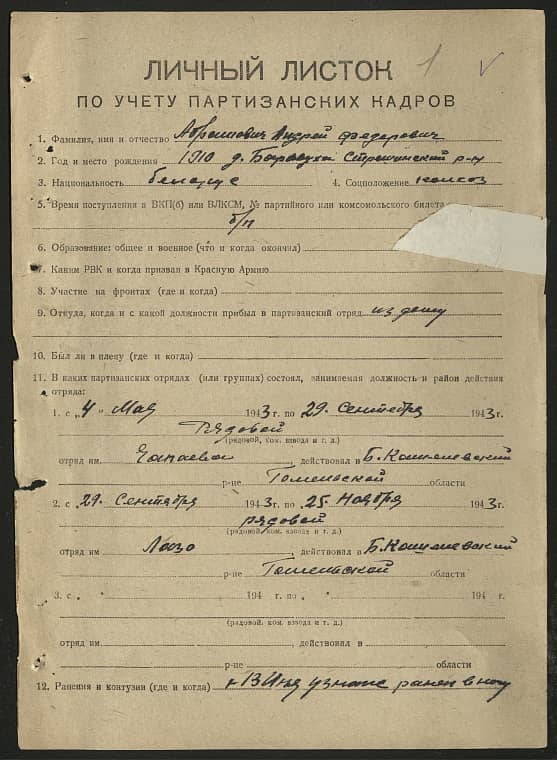 1
ЛИЧНЫЙ ЛИСТОК
ПО УЧЕТУ ПАРТИЗАНСКИХ КАДРОВ
1. Фамилия, имя и отчество Андрей Федорович
2. Год и место рождения 1910 д. Стрешинский р-н
3. Национальность беларус 4. Соцположение колхоз
5. Время поступления в ВКП(б) или ВЛКСМ, № партийного или комсомольского билета
б/п
6. Образование: общее и военное (что и когда окончил)
7. Каким РВК и когда призван в Красную Армию
8. Участие на фронтах (где и когда)
9. Откуда, когда и с какой должности прибыл в партизанский отряд из дому
10. Был ли в плену (где и когда)
11. В каких партизанских отрядах (или группах) состоял, занимаемая должность и район действия
отряда:
1. с „4 “ Мая 1943 г. по 29. Сентября 1943 г.
Рядовой
(рядовой, ком. взвода и т. д.)
отряд им. Чапаева, действовал в Б. Кошелевский
р-не Гомельской области
2. с 29. Сентября 1943 г. по 25. Ноября 1943 г.
рядовой
(рядовой, ком. взвода и т. д.)
отряд им Лазо, действовал в Б. Кошелевский
р-не Гомельской области
3. с „ “ 194 г. по „ “ 194 г.
(рядовой, ком. взвода и т. д.)
отряд им. , действовал в
р-не области
12. Ранения и контузии (где и когда) ранен в ногу